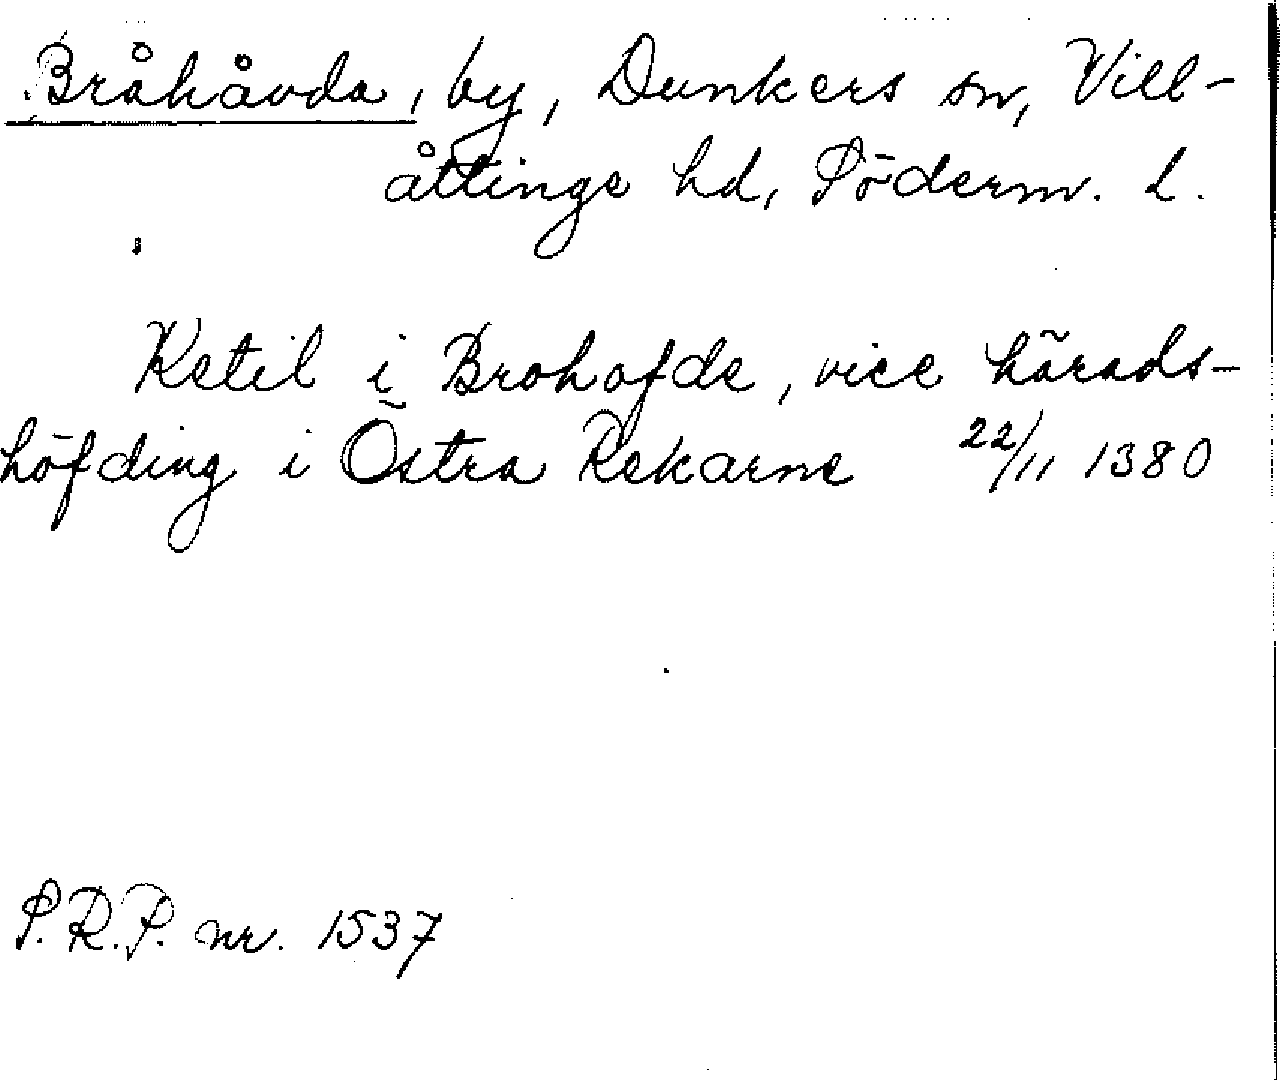 Bråhåvda, by, Dunkers sn, Vill-
åttinge hd, Söderm. L.
Ketil i Brohofde, vice härads-
höfding i Östra Rekarne 22/11 1380
S.R.P. nr. 1537